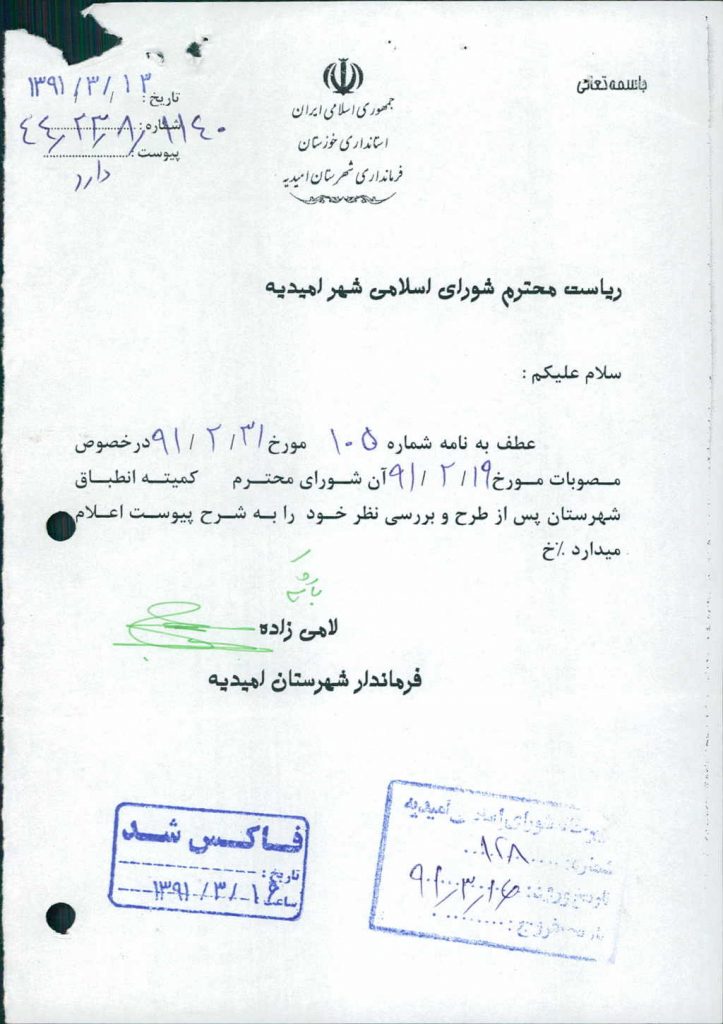 باسمه تعالی
جمهوری اسلامی ایران
استانداری خوزستان
فرمانداری شهرستان امیدیه
تاریخ : ۱۳۹۱/۳/۱۳
شماره :
پیوست :
دارد
ریاست محترم شورای اسلامی شهر امیدیه
سلام علیکم :
عطف به نامه شماره ۱۰۵ مورخ ۹۱/۲/۳۱ درخصوص
مصوبات مورخ ۹۱/۲/۱۹ آن شورای محترم کمیته انطباق
شهرستان پس از طرح و بررسی نظر خود را به شرح پیوست اعلام
میدارد ٪خ
لامی زاده
فرماندار شهرستان امیدیه
فاکس شد
تاریخ :
ساعت ۱۳۹۱/۳/۱۶
امیدیه
شماره: ۱۲۸